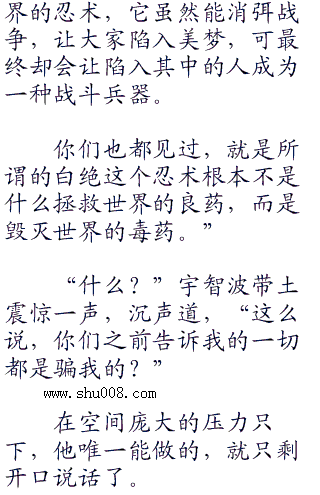 界的忍术，它虽然能消弭战
争，让大家陷入美梦，可最
终却会让陷入其中的人成为
一种战斗兵器。
你们也都见过，就是所
谓的白绝这个忍术根本不是
什么拯救世界的良药，而是
毁灭世界的毒药。”
“什么？”宇智波带土
震惊一声，沉声道，“这么
说，你们之前告诉我的一切
都是骗我的？”
www.shu008.com
在空间庞大的压力只
下，他唯一能做的，就只剩
开口说话了。